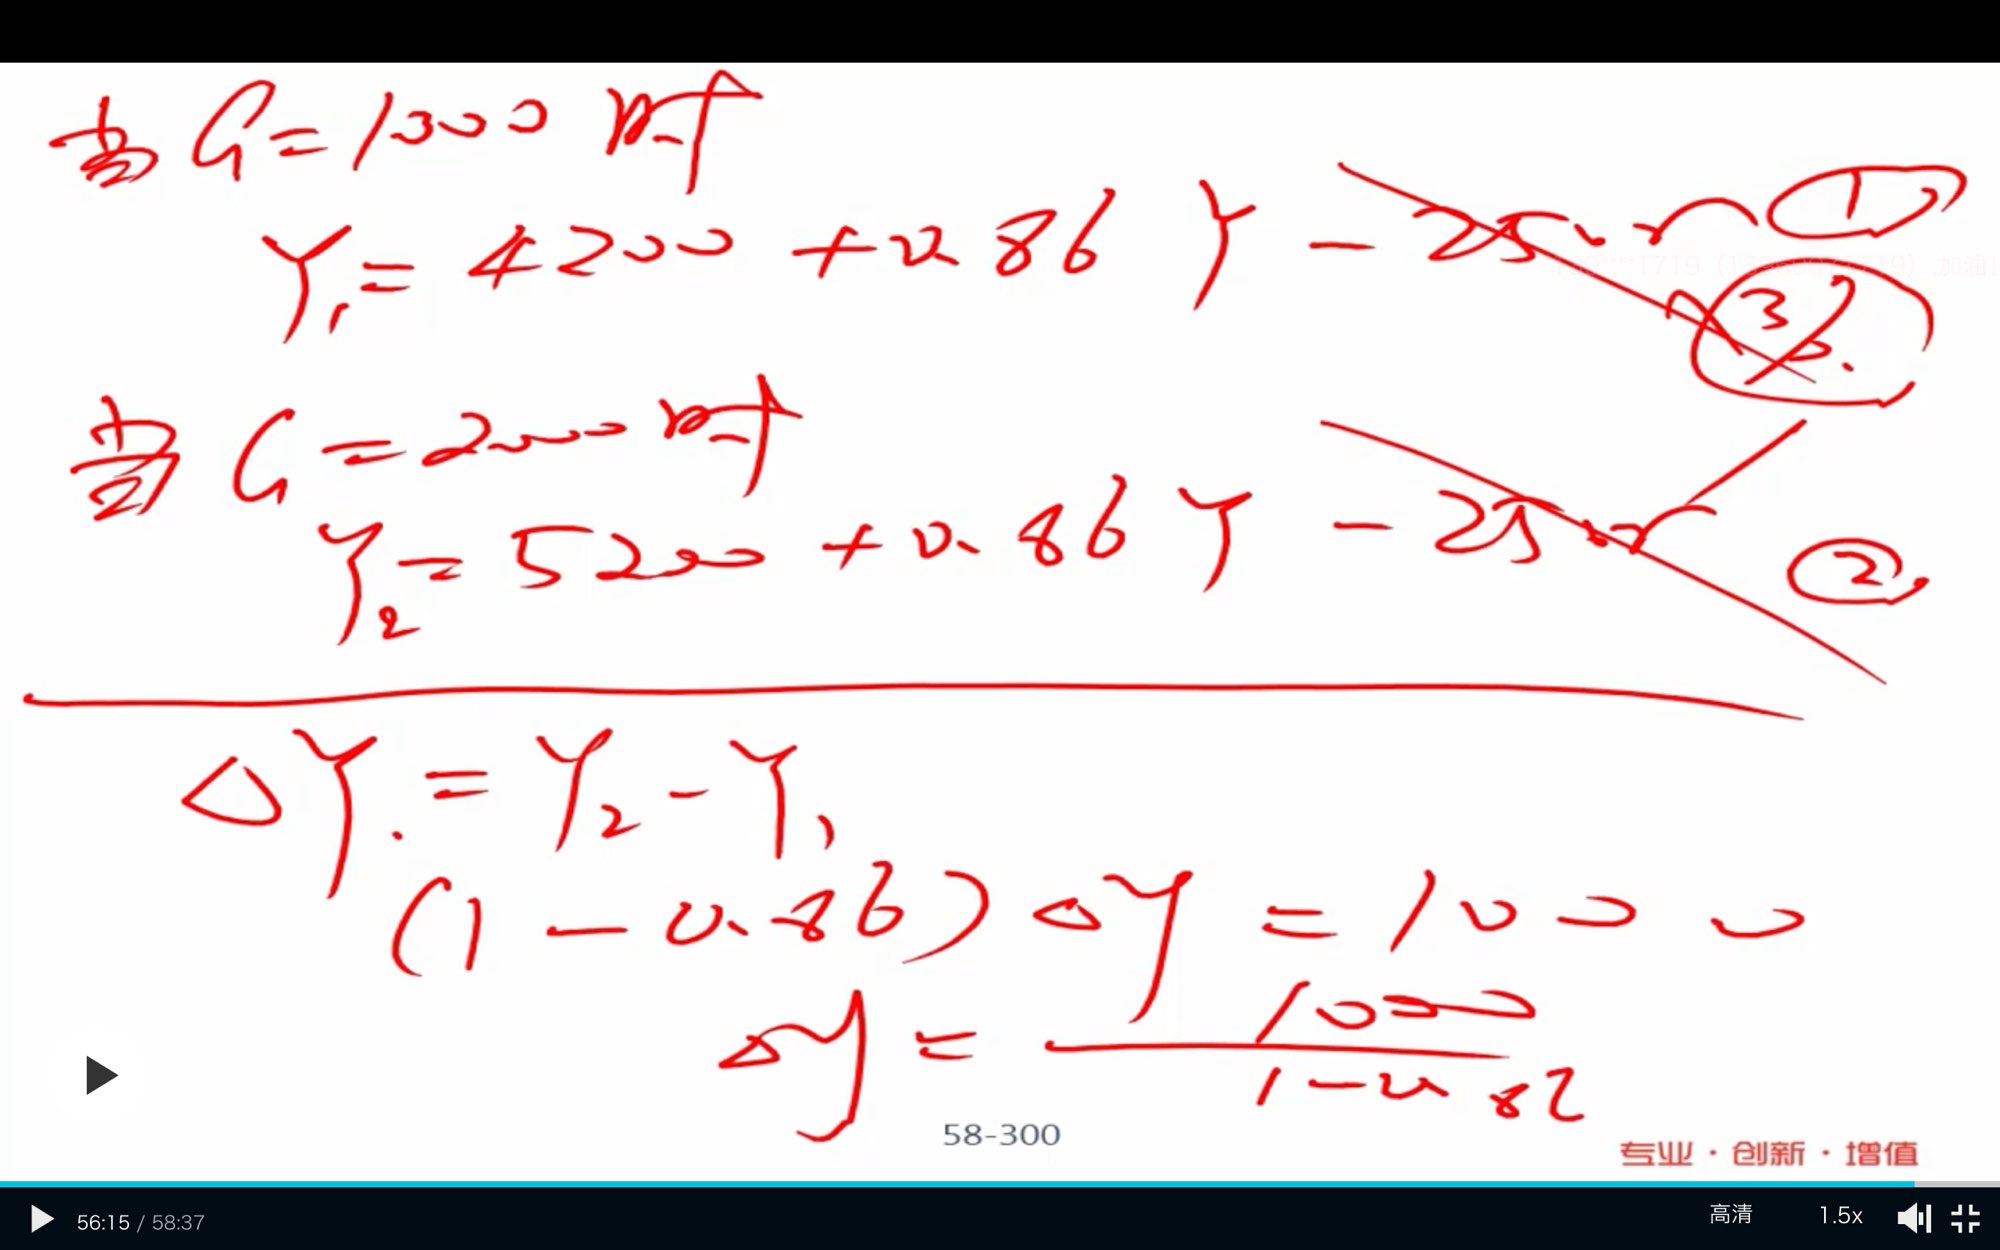 当 G=1000 时
Y₁= 4200 + 0.86 Y - 25
①
3%.
当 G=2000 时
Y₂= 5200 + 0.86 Y - 25
②
△Y = Y₂ - Y₁
(1 - 0.86) △Y = 1000
△Y = 1000
1-0.8
58-300
专业·创新·增值
56:15 / 58:37
高清
1.5x